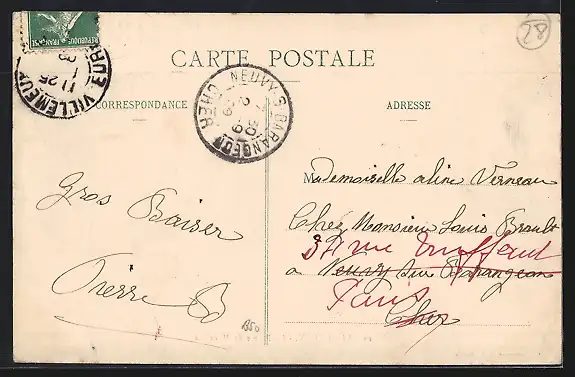 28
POSTES
RÉPUBLIQUE FRANÇAISE
VILLEMEUX EURE
11 25
CARTE POSTALE
CORRESPONDANCE
ADRESSE
NEUVY-S-BARANGEON
CHER
Mademoiselle Aline Verneau
Chez Monsieur Louis Brault
37 rue Truffaut
a Neuvy sur Barangeon
Paris
Cher
Gros Baiser
Pierre B
B50